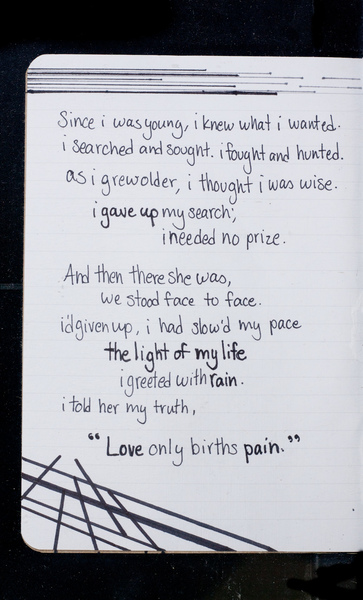 Since i was young, i knew what i wanted.
i searched and sought. i fought and hunted.
as i grew older, i thought i was wise.
i gave up my search;
i needed no prize.
And then there she was,
we stood face to face.
i'd given up, i had slow'd my pace
the light of my life
i greeted with rain.
i told her my truth,
"Love only births pain."